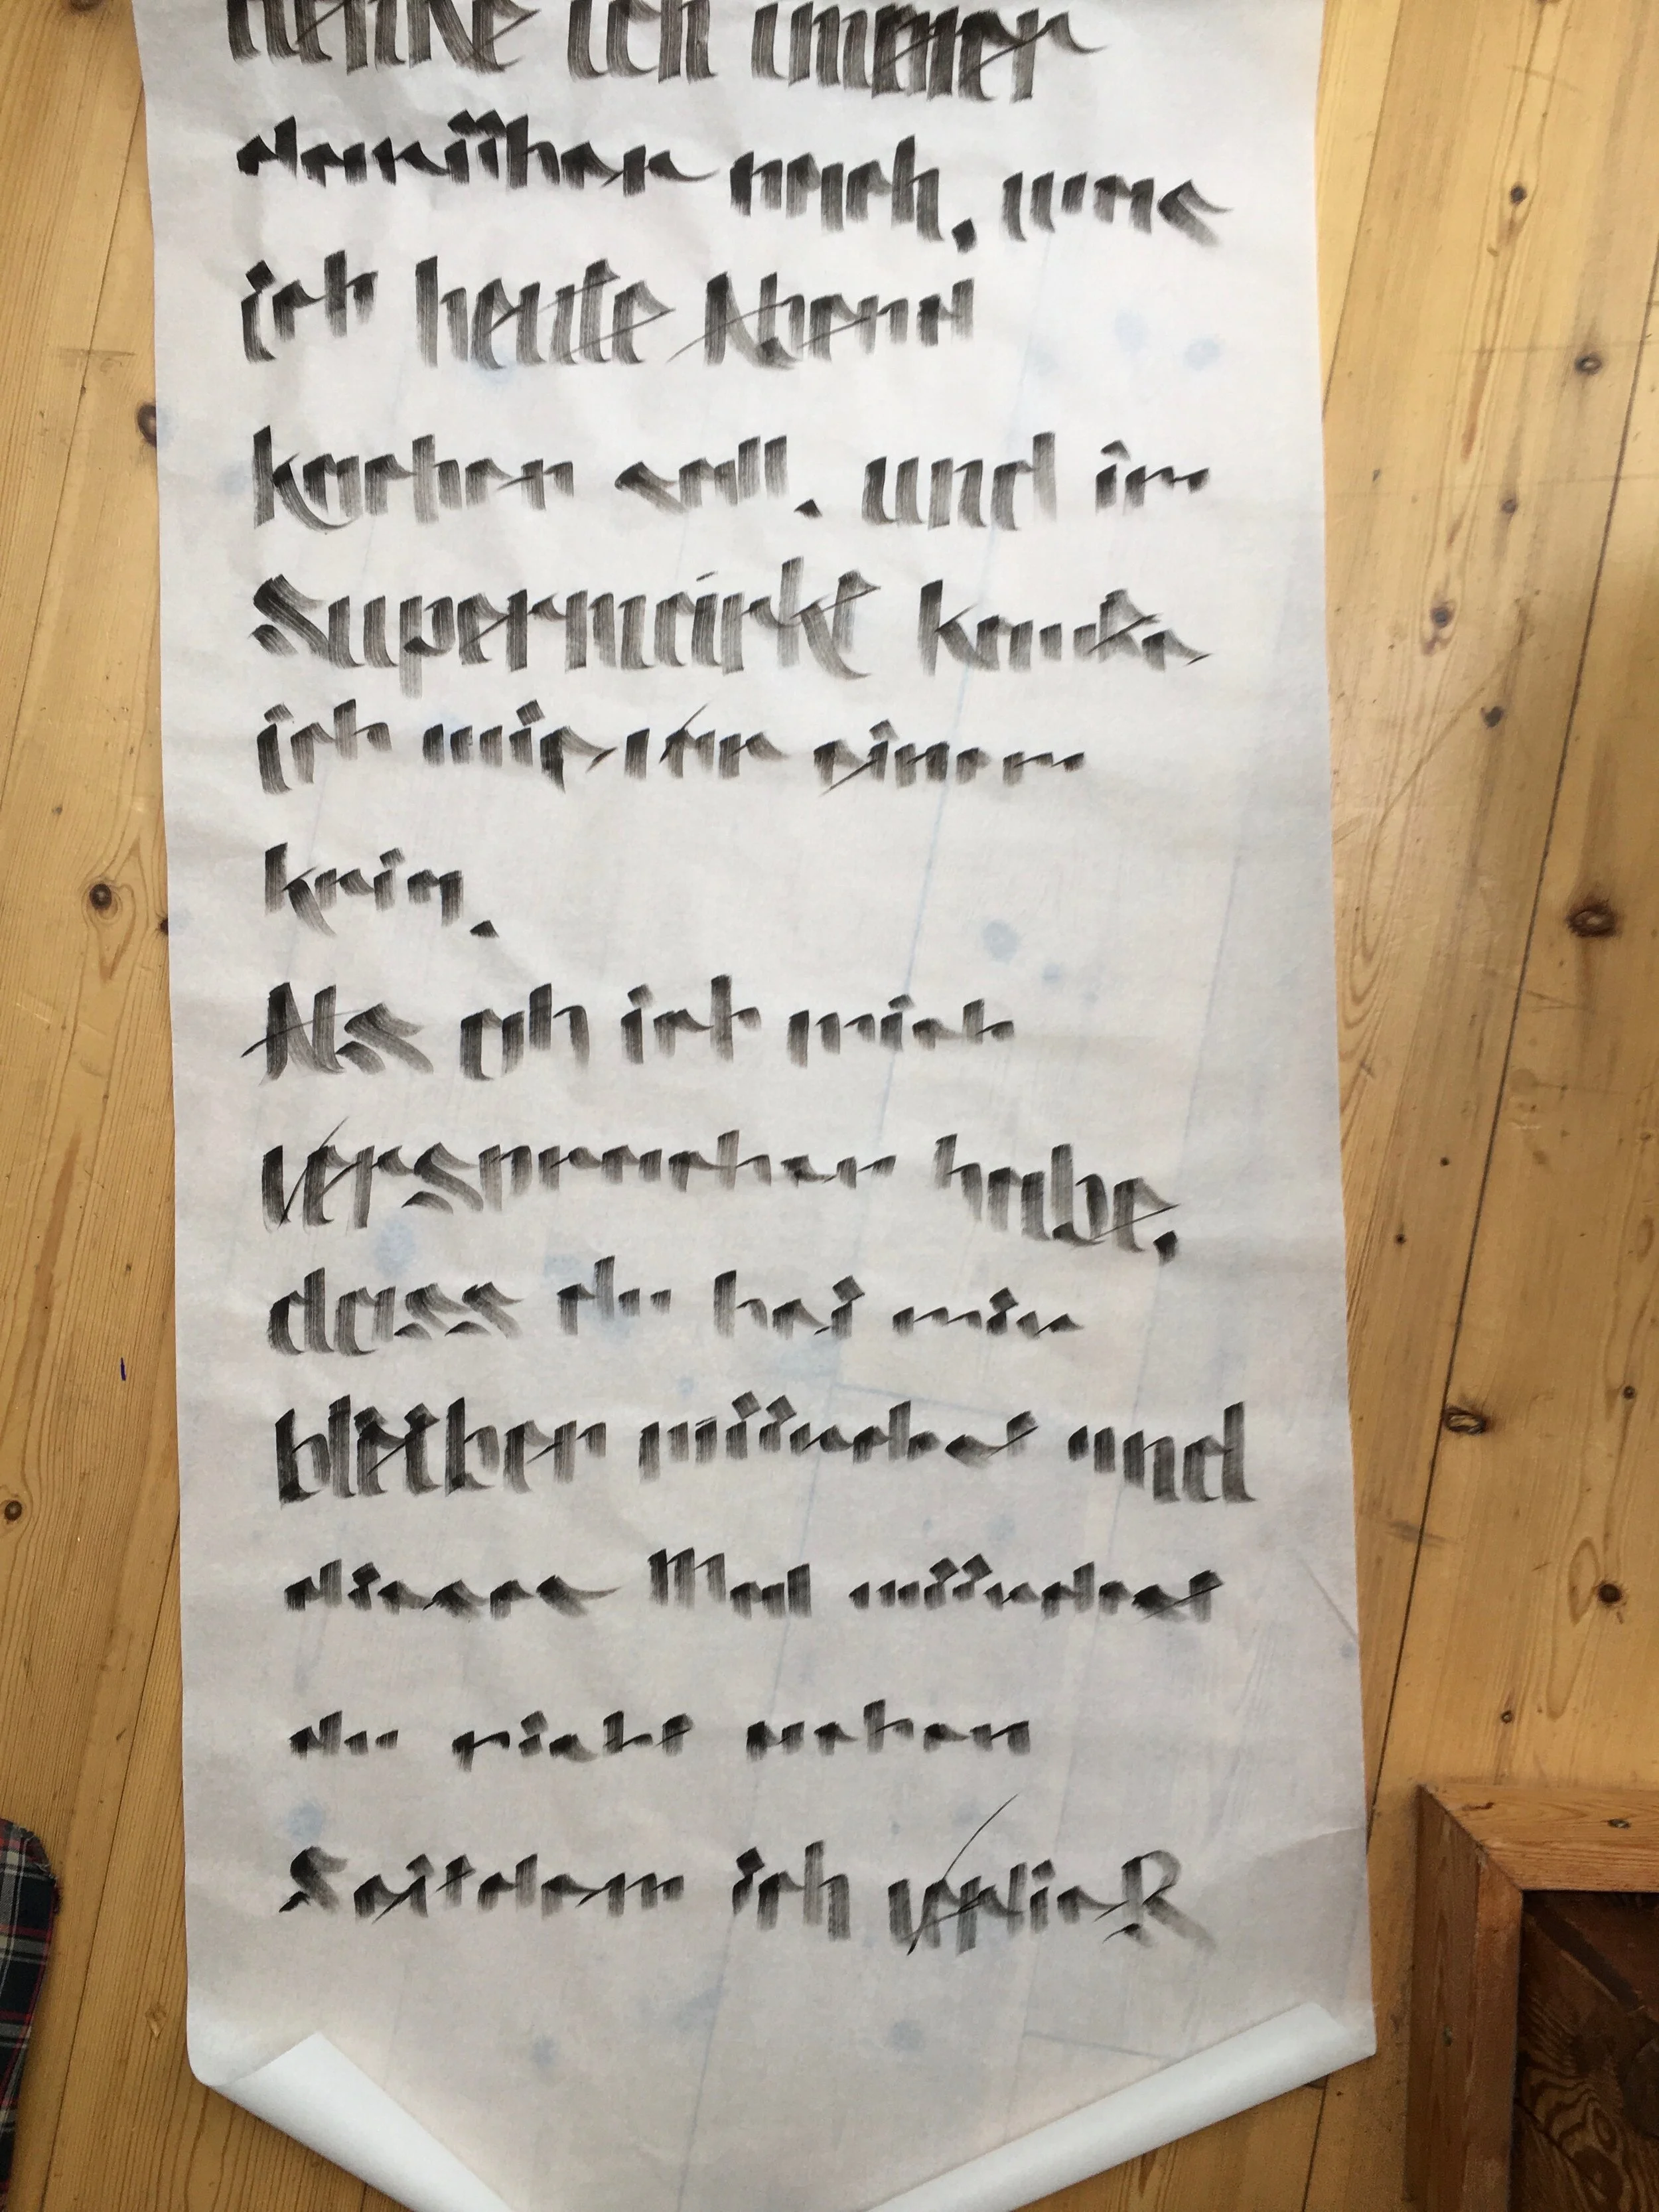 denke ich immer
darüber nach, was
ich heute Abend
kochen soll. und im
Supermarkt kaufe
ich nur einen
Als ob ich mich
versprochen habe,
dass du bei mir
bleiben würdest und
dieses Mal würdest
du nicht gehen
Seitdem ich verließ